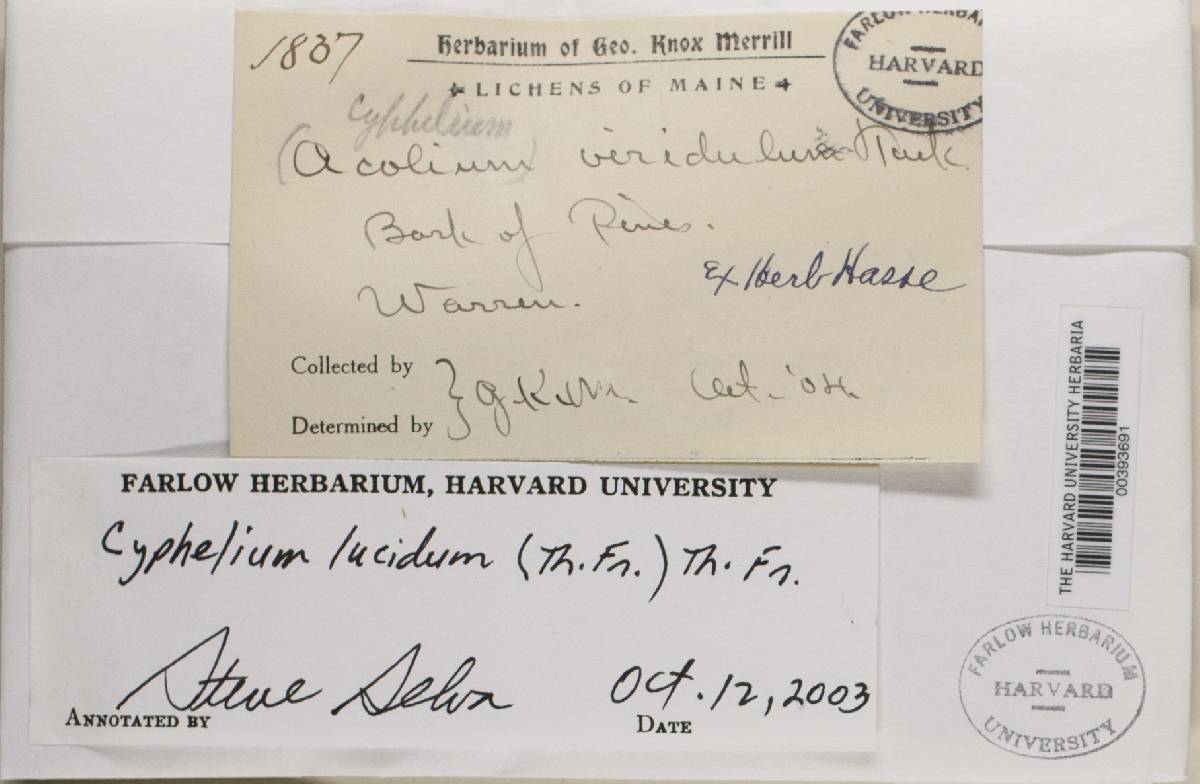 1837
Herbarium of Geo. Knox Merrill
LICHENS OF MAINE
FARLOW HERBARIUM
HARVARD
UNIVERSITY
Cyphelium
(Acolium) viridulum Tuck.
Bark of Pines.
Warren.
Ex Herb Hasse
Collected by
Determined by
} G.K.M. Oct. '04.
FARLOW HERBARIUM, HARVARD UNIVERSITY
Cyphelium lucidum (Th. Fr.) Th. Fr.
Steve Selva Oct. 12, 2003
ANNOTATED BY DATE
THE HARVARD UNIVERSITY HERBARIA
00393691
FARLOW HERBARIUM
HARVARD
UNIVERSITY